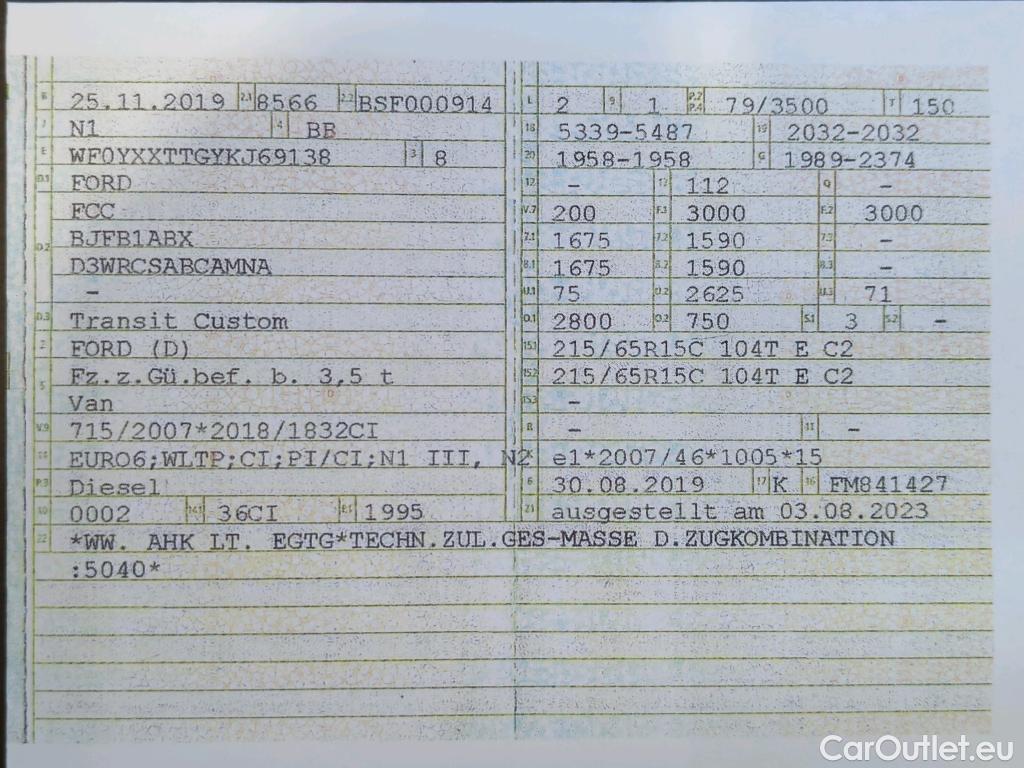 B 25.11.2019 2.1 8566 2.2 BSF000914
J N1 4 BB
E WF0YXXTTGYKJ69138 3 8
D.1 FORD
FCC
D.2 BJFB1ABX
D3WRCSABCAMNA
-
D.3 Transit Custom
2 FORD (D)
5 Fz.z.Gü.bef. b. 3,5 t
Van
V.9 715/2007*2018/1832CI
14 EURO6;WLTP;CI;PI/CI;N1 III, N2
P.3 Diesel
10 0002 14.1 36CI P.1 1995
L 2 9 1 P.2 P.4 79/3500 T 150
18 5339-5487 19 2032-2032
20 1958-1958 G 1989-2374
12 - 13 112 Q -
V.7 200 F.1 3000 F.2 3000
7.1 1675 7.2 1590 7.3 -
8.1 1675 8.2 1590 8.3 -
U.1 75 U.2 2625 U.3 71
O.1 2800 O.2 750 S.1 3 S.2 -
15.1 215/65R15C 104T E C2
15.2 215/65R15C 104T E C2
15.3 -
R - 11 -
K e1*2007/46*1005*15
6 30.08.2019 17 K 16 FM841427
21 ausgestellt am 03.08.2023
22 *WW. AHK LT. EGTG*TECHN.ZUL.GES-MASSE D.ZUGKOMBINATION
:5040*
CarOutlet.eu